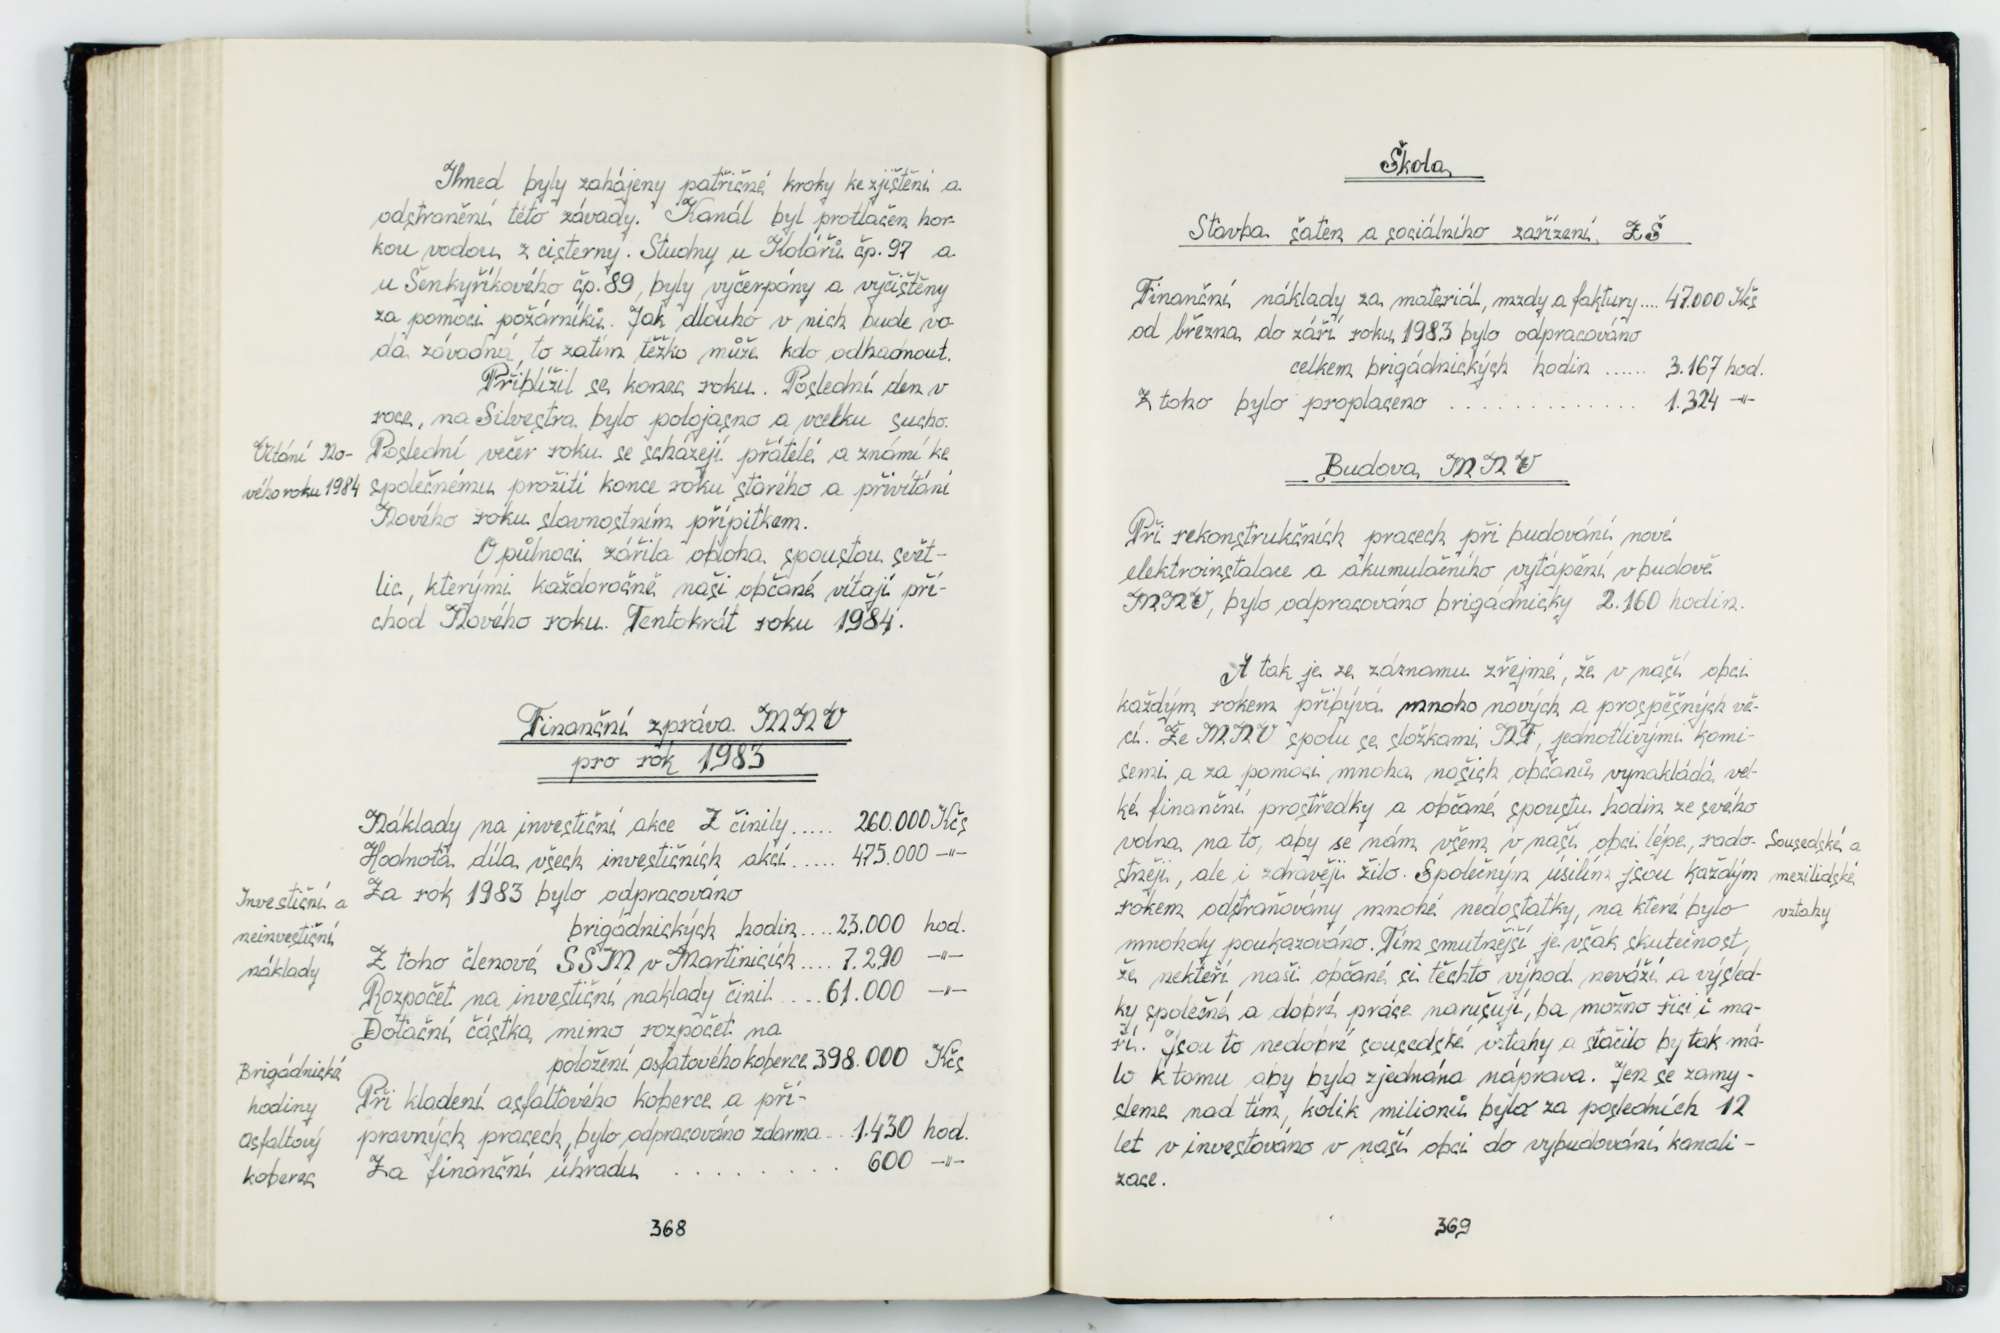 Ihned byly zahájeny patřičné kroky ke zjištění a
odstranění této závady. Kanál byl protlačen hor-
kou vodou z cisterny. Studny u Kolářů čp. 97 a
u Šenkyříkového čp. 89, byly vyčerpány a vyčištěny
za pomoci požárníků. Jak dlouho v nich bude vo-
da závadná, to zatím těžko může kdo odhadnout.
Přiblížil se konec roku. Poslední den v
roce, na Silvestra bylo polojasno a vcelku sucho.
Vítání No-
vého roku 1984
Poslední večer roku se scházejí přátelé a známí ke
společnému prožití konce roku starého a přivítání
Nového roku slavnostním přípitkem.
O půlnoci zářila obloha spoustou svět-
lic, kterými každoročně naši občané vítají pří-
chod Nového roku. Tentokrát roku 1984.
Finanční zpráva MNV
pro rok 1983
Náklady na investiční akce Z činily ..... 260.000 Kčs
Hodnota díla všech investičních akcí ..... 475.000 -"-
Investiční a
neinvestiční
náklady
Za rok 1983 bylo odpracováno
brigádnických hodin .... 23.000 hod.
Z toho členové SSM v Martinicích .... 7.290 -"-
Rozpočet na investiční naklady činil .... 61.000 -"-
Dotační částka mimo rozpočet na
položení asfatového koberce 398.000 Kčs
Brigádnické
hodiny
asfaltový
koberec
Při kladení asfaltového koberce a pří-
pravných pracech, bylo odpracováno zdarma ... 1.430 hod.
Za finanční úhradu .......... 600 -"-
368
Škola
Stavba šaten a sociálního zařízení ZŠ
Finanční náklady za materiál, mzdy a faktury .... 47.000 Kčs
od března do září roku 1983 bylo odpracováno
celkem brigádnických hodin ...... 3.167 hod.
Z toho bylo proplaceno ............. 1.324 -"-
Budova MNV
Při rekonstrukčních pracech při budování nové
elektroinstalace a akumulačního vytápění v budově
MNV, bylo odpracováno brigádnicky 2.160 hodin.
A tak je ze záznamu zřejmé, že v naší obci
každým rokem přibývá mnoho nových a prospěšných vě-
cí. Že MNV spolu se složkami NF, jednotlivými komi-
semi a za pomoci mnoha našich občanů vynakládá vel-
ké finanční prostředky a občané spoustu hodin ze svého
volna na to, aby se nám všem v naší obci lépe, rado-
stněji, ale i zdravěji žilo. Společným úsilím jsou každým
rokem odstraňovány mnohé nedostatky, na které bylo
Sousedské a
mezilidské
vztahy
mnohdy poukazováno. Tím smutnější je však skutečnost,
že někteří naši občané si těchto výhod neváží a výsled-
ky společné a dobré práce narušují, ba možno říci i ma-
ří. Jsou to nedobré sousedské vztahy a stačilo by tak má-
lo k tomu aby byla zjednána náprava. Jen se zamy-
sleme nad tím, kolik milionů bylo za posledních 12
let v investováno v naší obci do vybudování kanali-
zace.
369